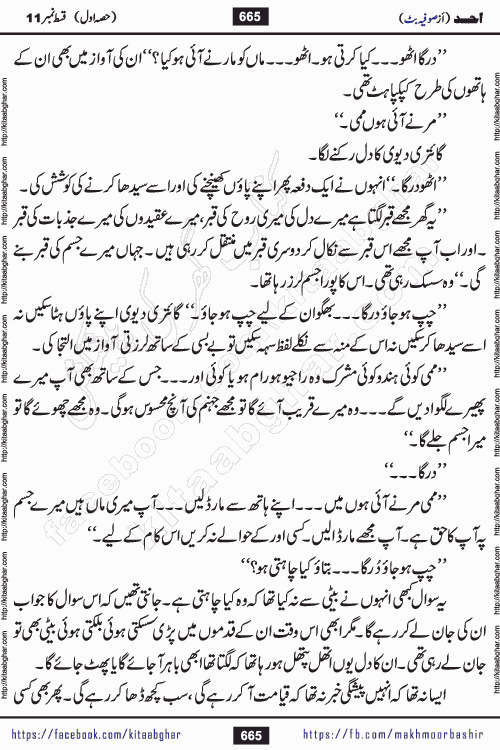 احد (از صوفیہ بٹ)
665
(حصہ اول) قسط نمبر 11
”درگا اٹھو۔۔۔کیا کرتی ہو۔اٹھو۔۔۔ماں کو مارنے آئی ہو کیا؟“ان کی آواز میں بھی ان کے
ہاتھوں کی طرح کپکپاہٹ تھی۔
”مرنے آئی ہوں ممی۔“
گائتری دیوی کا دل رکنے لگا۔
”اٹھو درگا۔“انہوں نے ایک دفعہ پھر اپنے پاؤں کھینچنے کی اور اسے سیدھا کرنے کی کوشش کی۔
”یہ گھر مجھے قبر لگتا ہے میرے دل کی میری روح کی قبر،میرے عقیدوں کی میرے جذبات کی قبر
۔اور اب آپ مجھے اس قبر سے نکال کر دوسری قبر میں منتقل کر رہی ہیں ۔جہاں میرے جسم کی قبر بنے
گی۔“وہ سسک رہی تھی۔اس کا پورا جسم لرز رہا تھا۔
”چپ ہو جاؤ درگا۔۔۔بھگوان کے لیے چپ ہو جاؤ۔“گائتری دیوی اپنے پاؤں ہٹا سکیں نہ
اسے سیدھا کر سکیں نہ اس کے منہ سے نکلے لفظ سہہ سکیں تو بے بسی کے ساتھ لرزتی آواز میں التجا کی۔
”ممی کوئی ہندو کوئی مشرک وہ راجیو ہو رام ہو یا کوئی اور۔۔۔جس کے ساتھ بھی آپ میرے
پھیرے لگوا دیں گے۔۔۔وہ میرے قریب آئے گا تو مجھے جہنم کی آنچ محسوس ہو گی۔وہ مجھے چھوئے گا تو
میرا جسم جلے گا۔“
”درگا۔۔۔“
”ممی مرنے آئی ہوں میں۔۔۔اپنے ہاتھ سے مار ڈالیں۔۔۔آپ میری ماں ہیں میرے جسم
پہ آپ کا حق ہے۔آپ مجھے مار ڈالیں۔کسی اور کے حوالے نہ کریں اس کام کے لیے۔“
”چپ ہو جاؤ دُرگا۔۔۔بتاؤ کیا چاہتی ہو؟“
یہ سوال کبھی انہوں نے بیٹی سے نہ کیا تھا کہ وہ کیا چاہتی ہے۔جانتی تھیں کہ اس سوال کا جواب
ان کی جان لے کر رہے گا۔مگر ابھی اس وقت ان کے قدموں میں پڑی سسکتی ہوئی بلکتی ہوئی بیٹی بھی تو
جان لے رہی تھی۔ان کا دل یوں اتھل پتھل ہو رہا تھا کہ لگتا تھا ابھی باہر آ جائے گا یا پھٹ جائے گا۔
ایسا نہ تھا کہ انہیں پیشگی خبر نہ تھا کہ قیامت آ کر رہے گی،سب کچھ ڈھا کر رہے گی۔پھر بھی کسی
https://facebook.com/kitaabghar
665
https://fb.com/makhmoorbashir
http://kitaabghar.com
facebook.com/kitaabghar